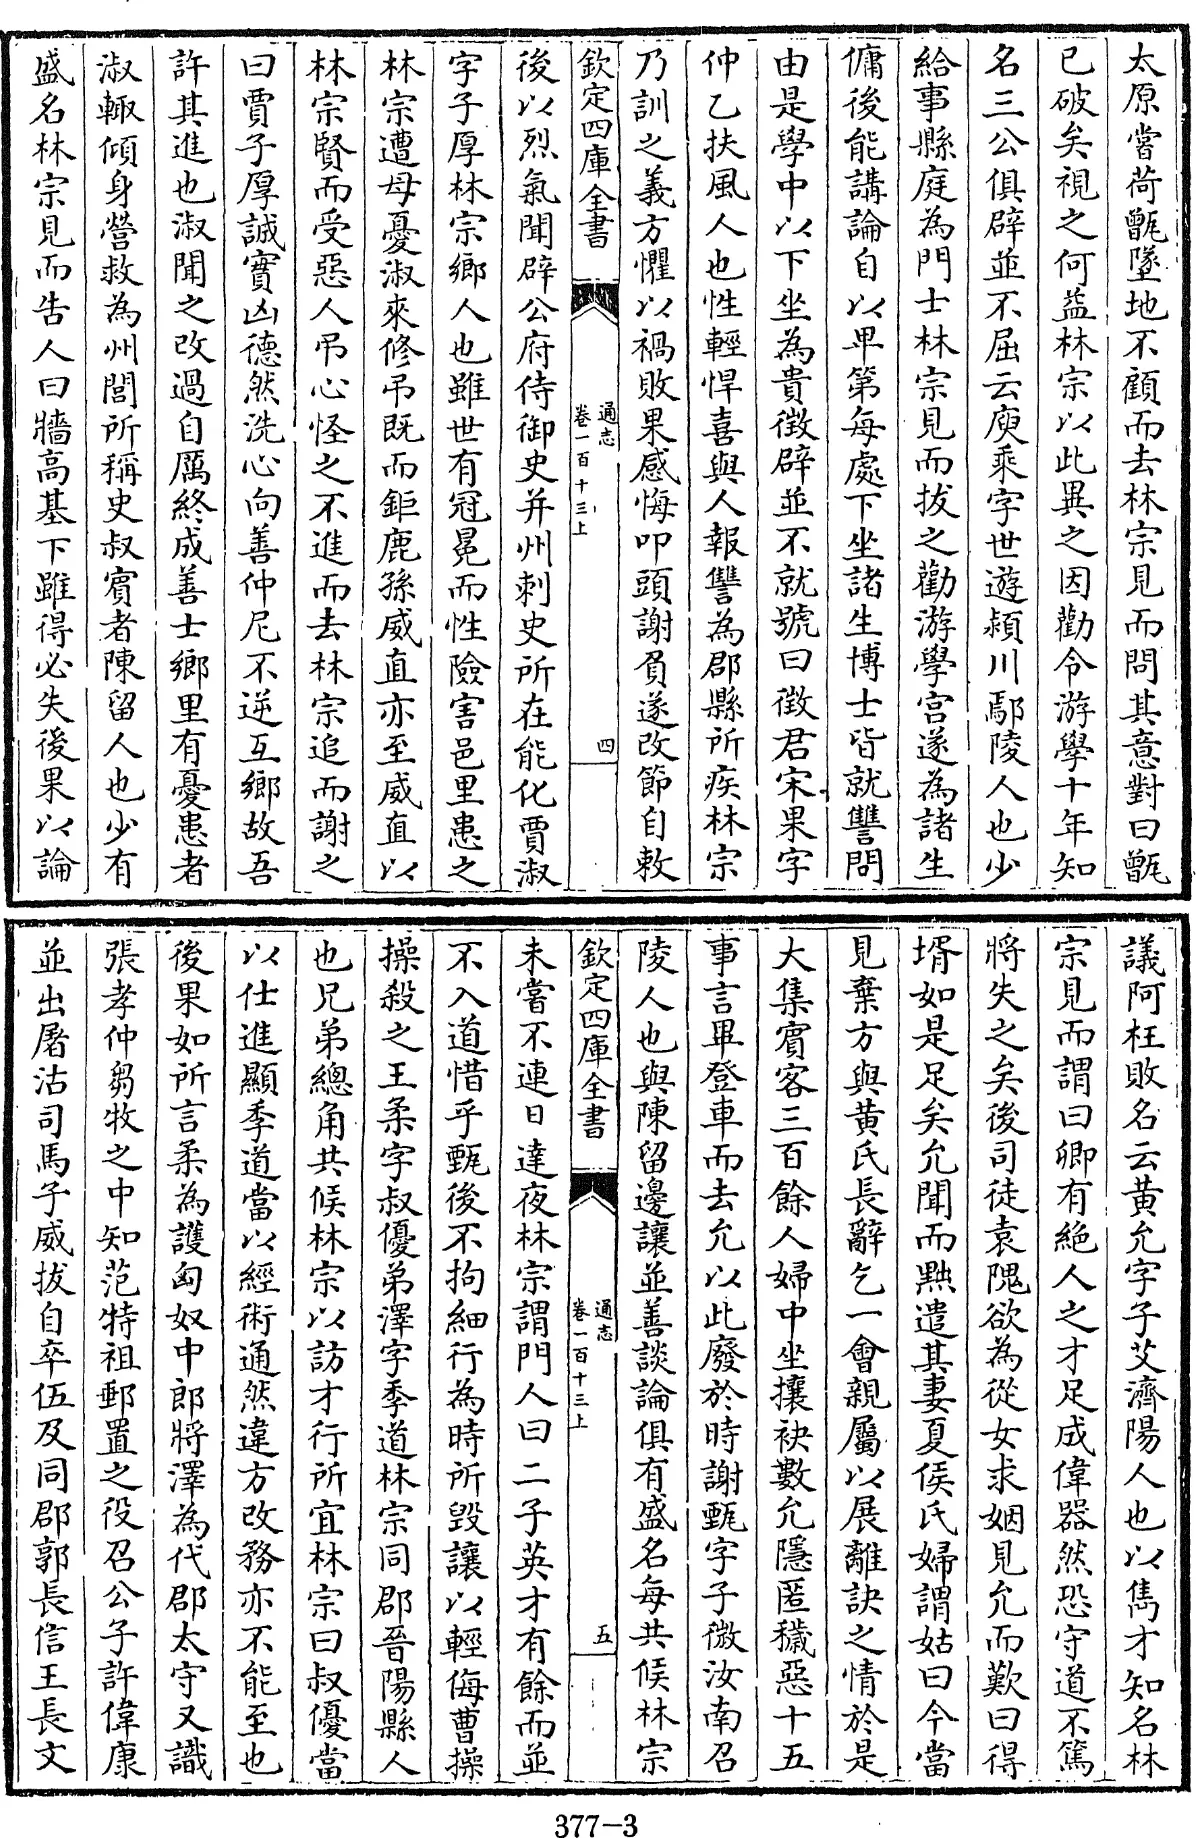 太原嘗荷甑墜地不顧而去林宗見而問其意對曰甑
已破矣視之何益林宗以此異之因勸令游學十年知
名三公俱辟並不屈云庾乘字世遊潁川鄢陵人也少
給事縣庭為門士林宗見而拔之勸游學宮遂為諸生
傭後能講論自以卑第每處下坐諸生博士皆就讐問
由是學中以下坐為貴徵辟並不就號曰徵君宋果字
仲乙扶風人也性輕悍喜與人報讐為郡縣所疾林宗
乃訓之義方懼以禍敗果感悔叩頭謝負遂改節自敕
欽定四庫全書
通志
卷一百十三上
四
後以烈氣聞辟公府侍御史并州刺史所在能化賈淑
字子厚林宗鄉人也雖世有冠冕而性險害邑里患之
林宗遭母憂淑來修弔既而鉅鹿孫威直亦至威直以
林宗賢而受惡人弔心怪之不進而去林宗追而謝之
曰賈子厚誠實凶德然洗心向善仲尼不逆互鄉故吾
許其進也淑聞之改過自厲終成善士鄉里有憂患者
淑輙傾身營救為州閭所稱史叔賓者陳留人也少有
盛名林宗見而告人曰牆高基下雖得必失後果以論
議阿枉敗名云黃允字子艾濟陽人也以雋才知名林
宗見而謂曰卿有絕人之才足成偉器然恐守道不篤
將失之矣後司徒袁隗欲為從女求姻見允而歎曰得
壻如是足矣允聞而黜遣其妻夏侯氏婦謂姑曰今當
見棄方與黃氏長辭乞一會親屬以展離訣之情於是
大集賓客三百餘人婦中坐攘袂數允隱匿穢惡十五
事言畢登車而去允以此廢於時謝甄字子微汝南召
陵人也與陳留邊讓並善談論俱有盛名每共候林宗
欽定四庫全書
通志
卷一百十三上
五
未嘗不連日達夜林宗謂門人曰二子英才有餘而並
不入道惜乎甄後不拘細行為時所毀讓以輕侮曹操
操殺之王柔字叔優弟澤字季道林宗同郡晉陽縣人
也兄弟總角共候林宗以訪才行所宜林宗曰叔優當
以仕進顯季道當以經術通然違方改務亦不能至也
後果如所言柔為護匈奴中郎將澤為代郡太守又識
張孝仲芻牧之中知范特祖郵置之役召公子許偉康
並出屠沽司馬子威拔自卒伍及同郡郭長信王長文
377-3